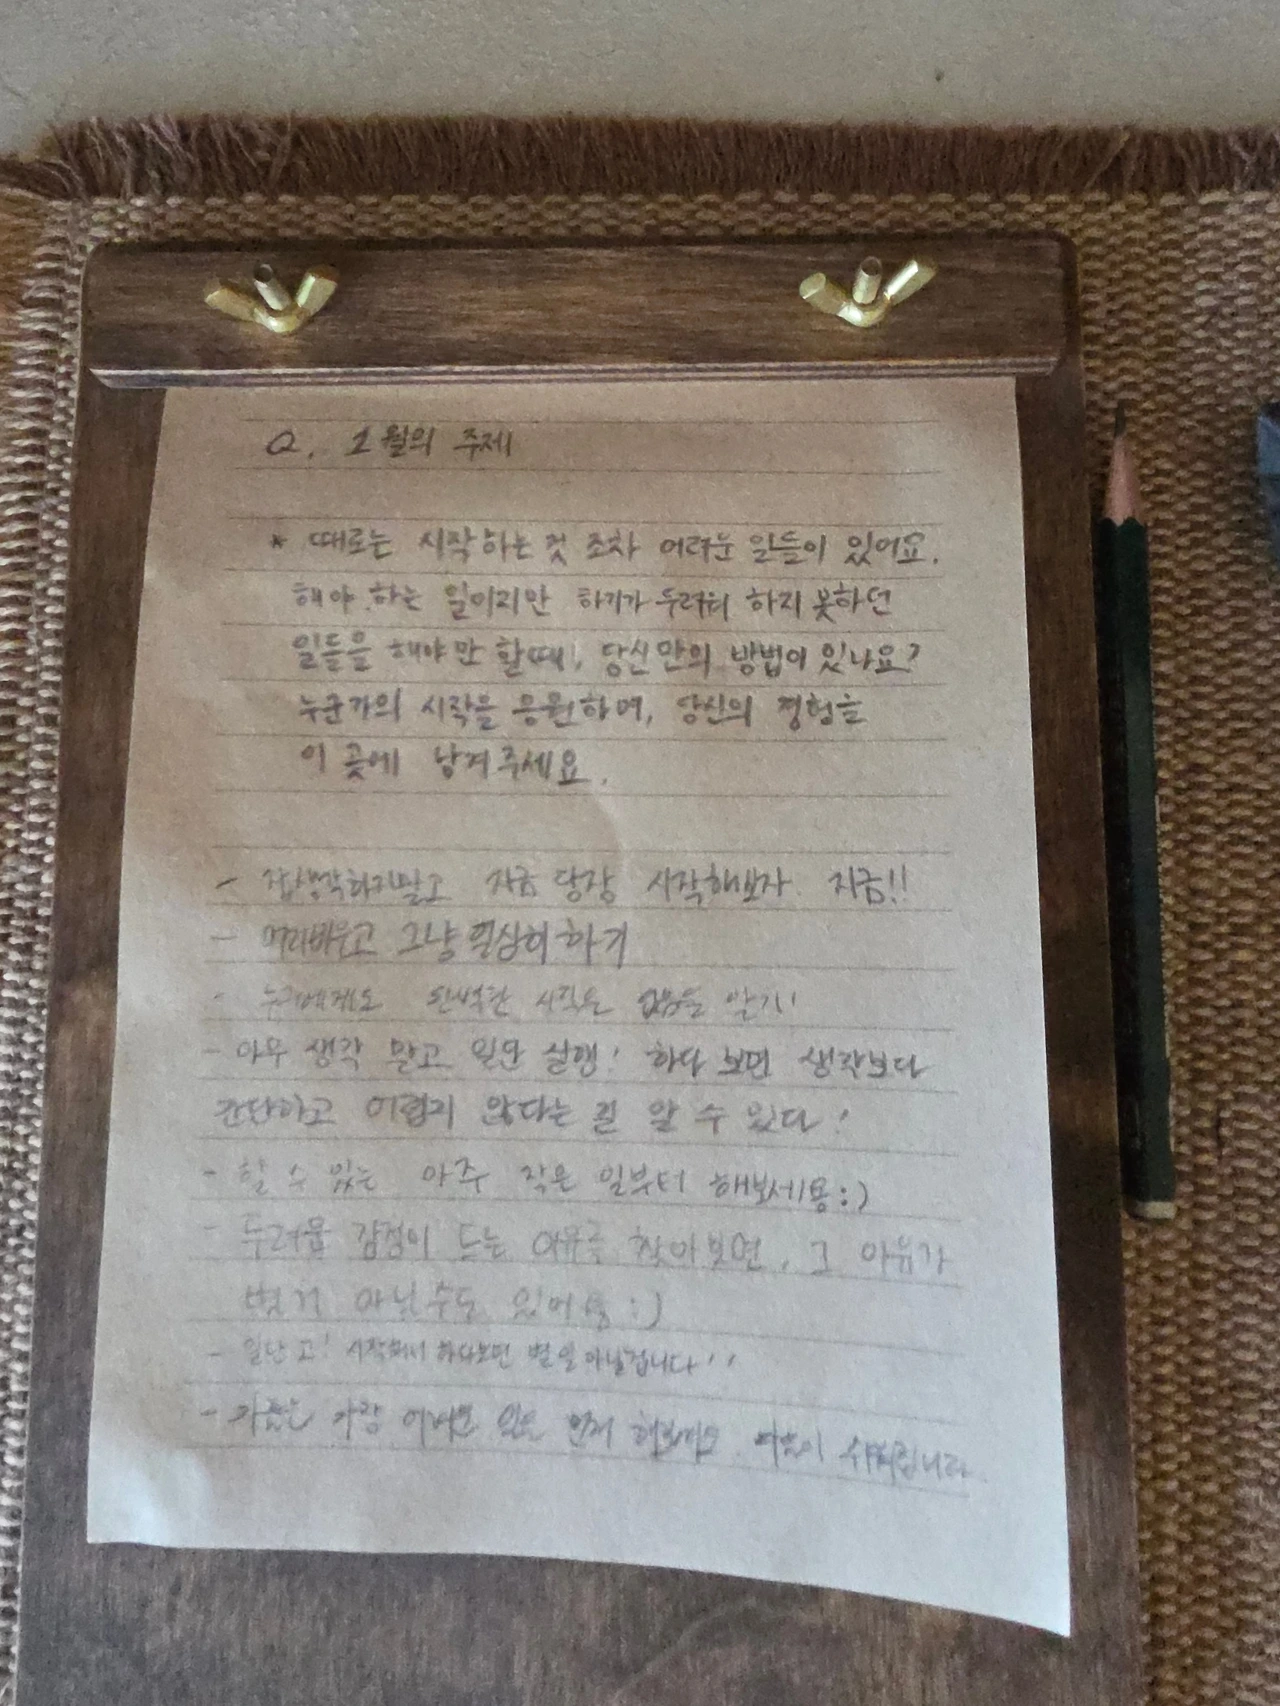 Q. 1월의 주제
* 때로는 시작하는것 조차 어려운 일들이 있어요.
해야 하는 일이지만 하기가 두려워 하지 못하던
일들을 해야만 할때, 당신만의 방법이 있나요?
누군가의 시작을 응원하며, 당신의 경험을
이 곳에 남겨주세요.
- 잡생각하지말고 지금 당장 시작해보자. 지금!!
- 머리비우고 그냥 열심히 하기
- 누구에게도 완벽한 시작은 없음을 알기!
- 아무 생각 말고 일단 실행! 하다 보면 생각보다
간단하고 어렵지 않다는 걸 알 수 있다!
- 할 수 있는 아주 작은 일부터 해보세용:)
- 두려움 감정이 드는 이유를 찾아보면, 그 이유가
별거 아닐수도 있어용:)
- 일단 고! 시작해서 하다보면 별 일 아닐겁니다!!
- 가끔은 가장 어려운 일을 먼저 해보세요. 마음이